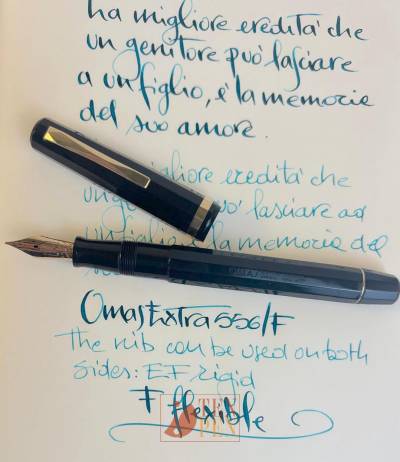 ha migliore eredità che
un genitore può lasciare
a un figlio, è la memoria
del suo amore.
migliore eredità che
lasciare ad
la memoria del
Omas Extra 556/F
The nib can be used on both
sides: EF rigid
F flexible
TEN
PEN